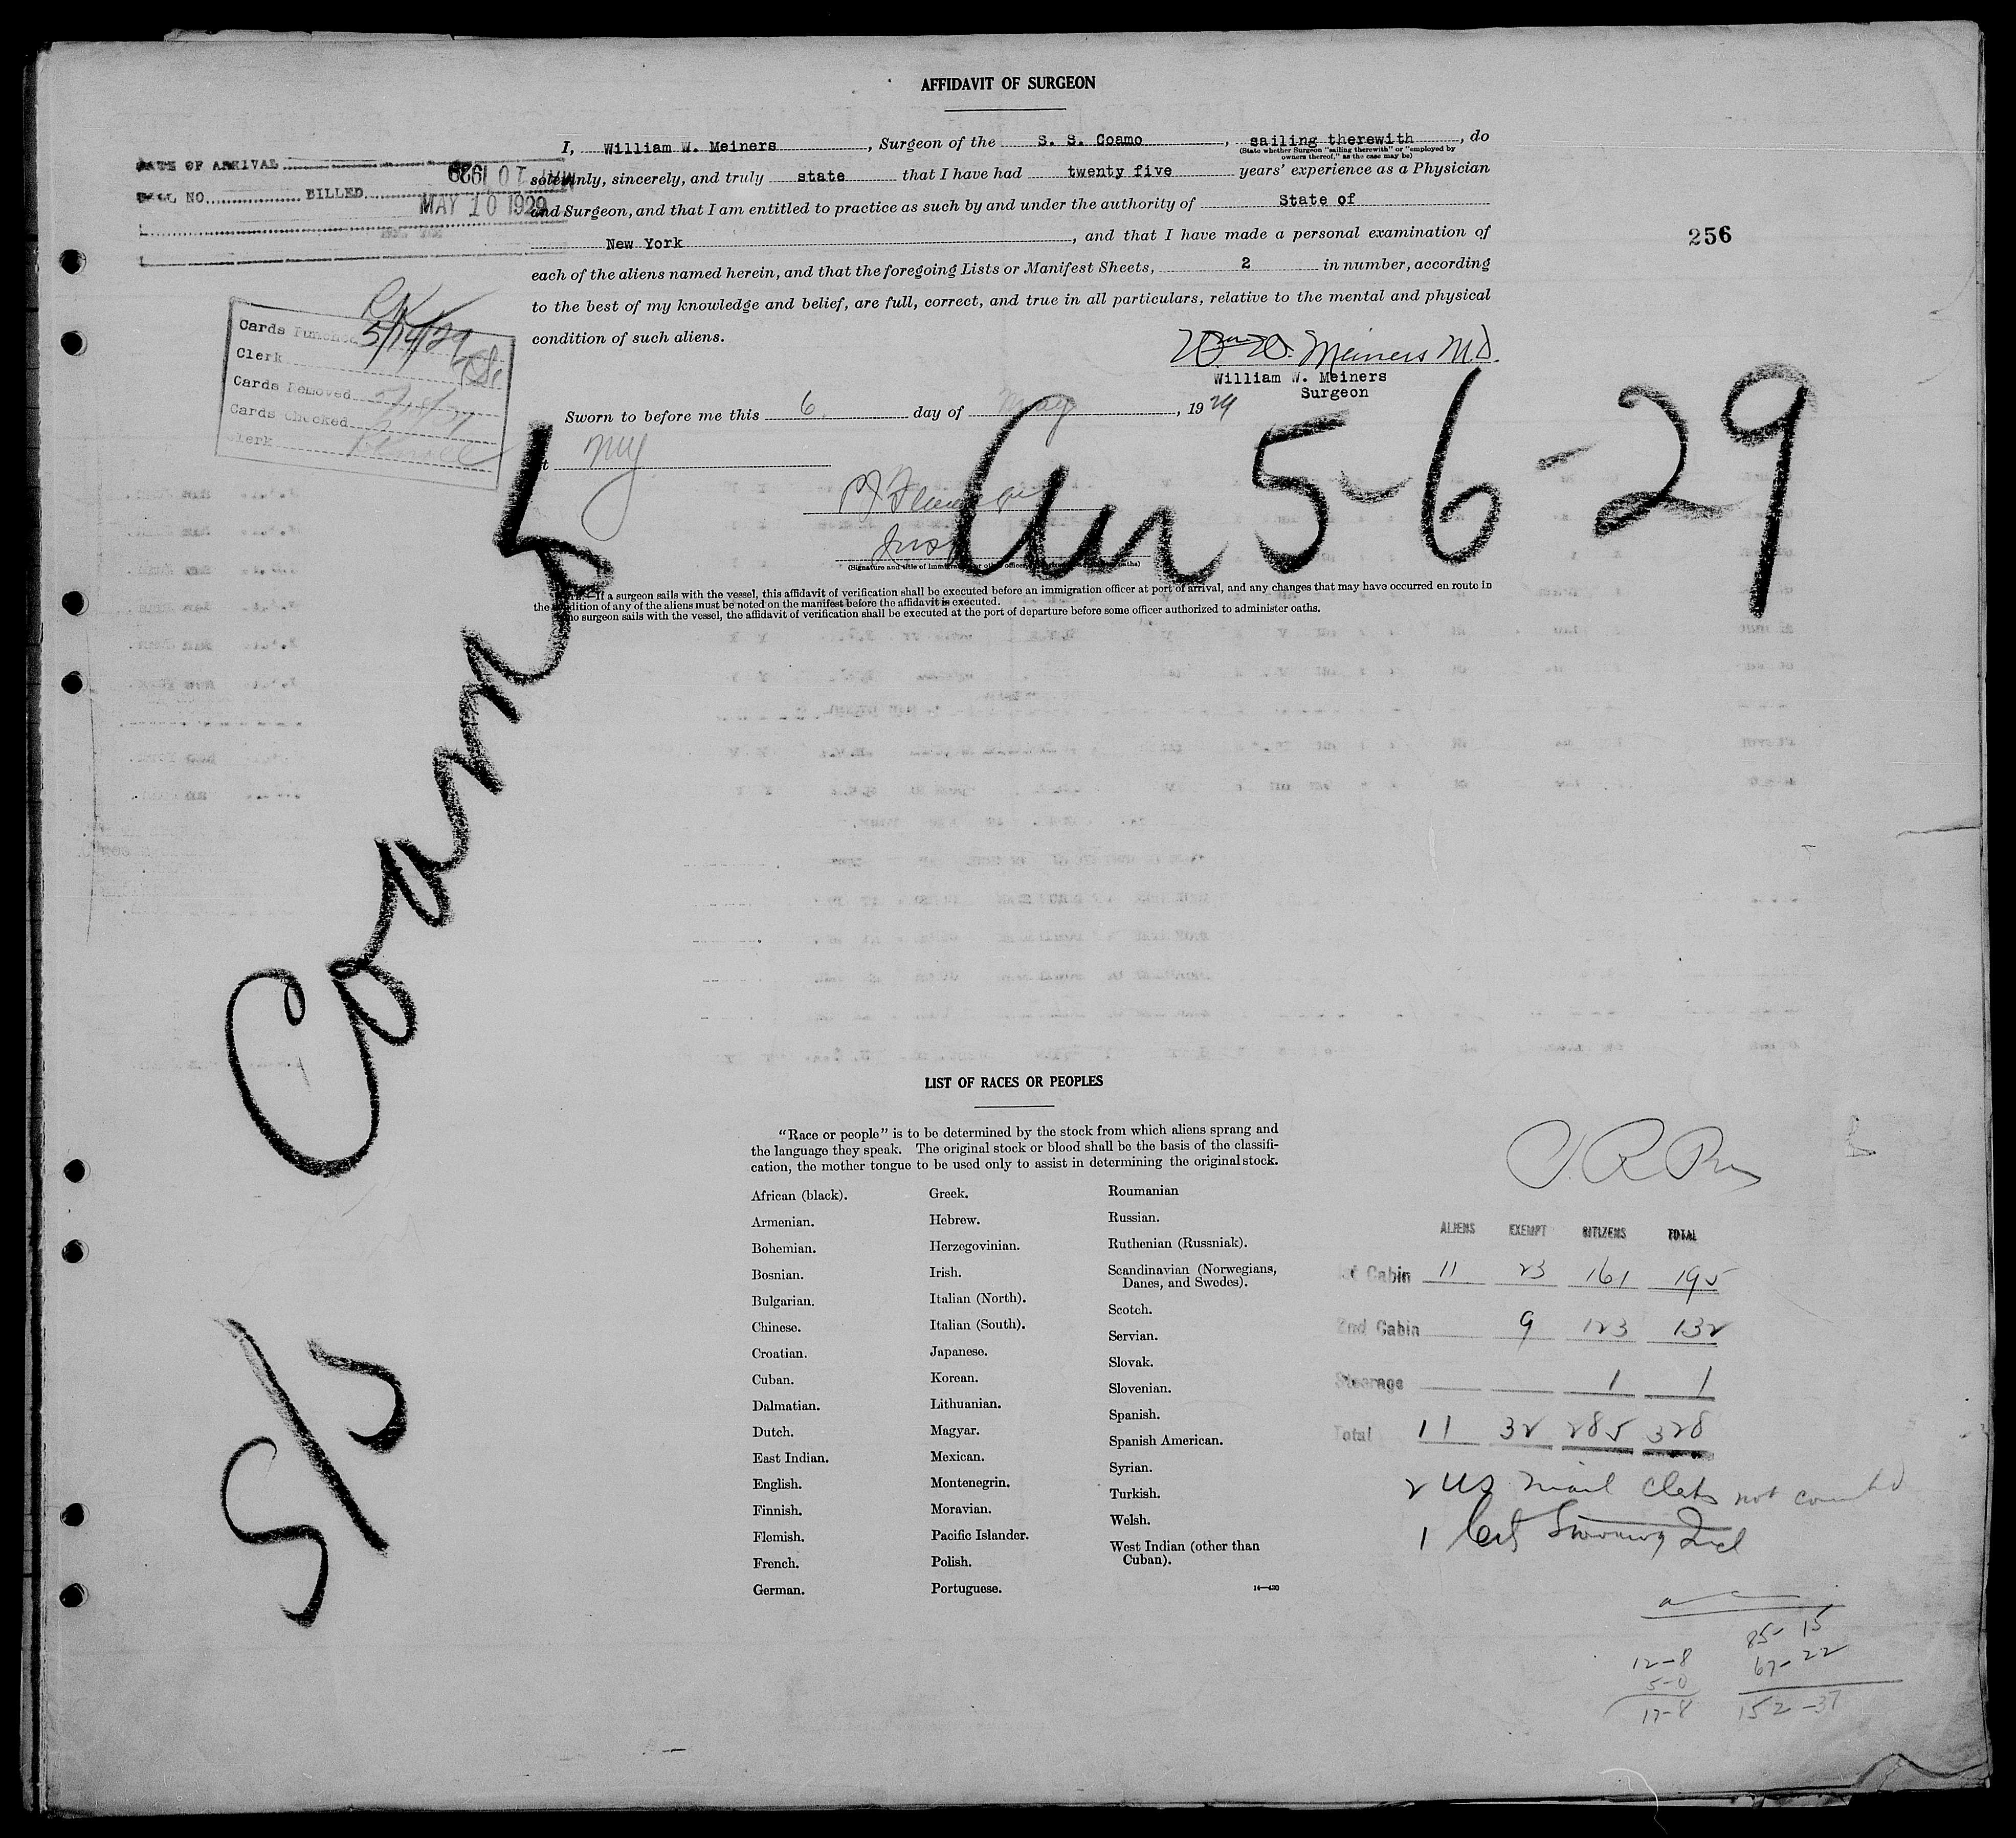 AFFIDAVIT OF SURGEON
I, William W. Meiners, Surgeon of the S. S. Coamo, sailing therewith, do
(State whether Surgeon "sailing therewith" or "employed by
owners thereof," as the case may be)
solemnly, sincerely, and truly state that I have had twenty five years' experience as a Physician
and Surgeon, and that I am entitled to practice as such by and under the authority of State of
New York, and that I have made a personal examination of
each of the aliens named herein, and that the foregoing Lists or Manifest Sheets, 2 in number, according
to the best of my knowledge and belief, are full, correct, and true in all particulars, relative to the mental and physical
condition of such aliens.
Wm W. Meiners M.D.
William W. Meiners
Surgeon
Sworn to before me this 6, day of May, 1929
at NY
Insp
(Signature and title of immigrant or other officer
NOTE.—If a surgeon sails with the vessel, this affidavit of verification shall be executed before an immigration officer at port of arrival, and any changes that may have occurred en route in
the condition of any of the aliens must be noted on the manifest before the affidavit is executed.
If no surgeon sails with the vessel, the affidavit of verification shall be executed at the port of departure before some officer authorized to administer oaths.
DATE OF ARRIVAL
MAY 10 1929
BILL NO. BILLED
MAY 10 1929
256
Cards Punched 5/14/29
Clerk
Cards Removed
Cards Checked
Clerk
S/S Coamo
Arr 5-6-29
LIST OF RACES OR PEOPLES
"Race or people" is to be determined by the stock from which aliens sprang and
the language they speak. The original stock or blood shall be the basis of the classifi-
cation, the mother tongue to be used only to assist in determining the original stock.
African (black).
Armenian.
Bohemian.
Bosnian.
Bulgarian.
Chinese.
Croatian.
Cuban.
Dalmatian.
Dutch.
East Indian.
English.
Finnish.
Flemish.
French.
German.
Greek.
Hebrew.
Herzegovinian.
Irish.
Italian (North).
Italian (South).
Japanese.
Korean.
Lithuanian.
Magyar.
Mexican.
Montenegrin.
Moravian.
Pacific Islander.
Polish.
Portuguese.
Roumanian
Russian.
Ruthenian (Russniak).
Scandinavian (Norwegians,
Danes, and Swedes).
Scotch.
Servian.
Slovak.
Slovenian.
Spanish.
Spanish American.
Syrian.
Turkish.
Welsh.
West Indian (other than
Cuban).
14—420
ALIENS EXEMPT CITIZENS TOTAL
1st Cabin 11 23 161 195
2nd Cabin 9 123 132
Steerage 1 1
Total 11 32 285 328
2 US mail clerks not counted
12-8
5-0
17-8
85-15
67-22
152-37